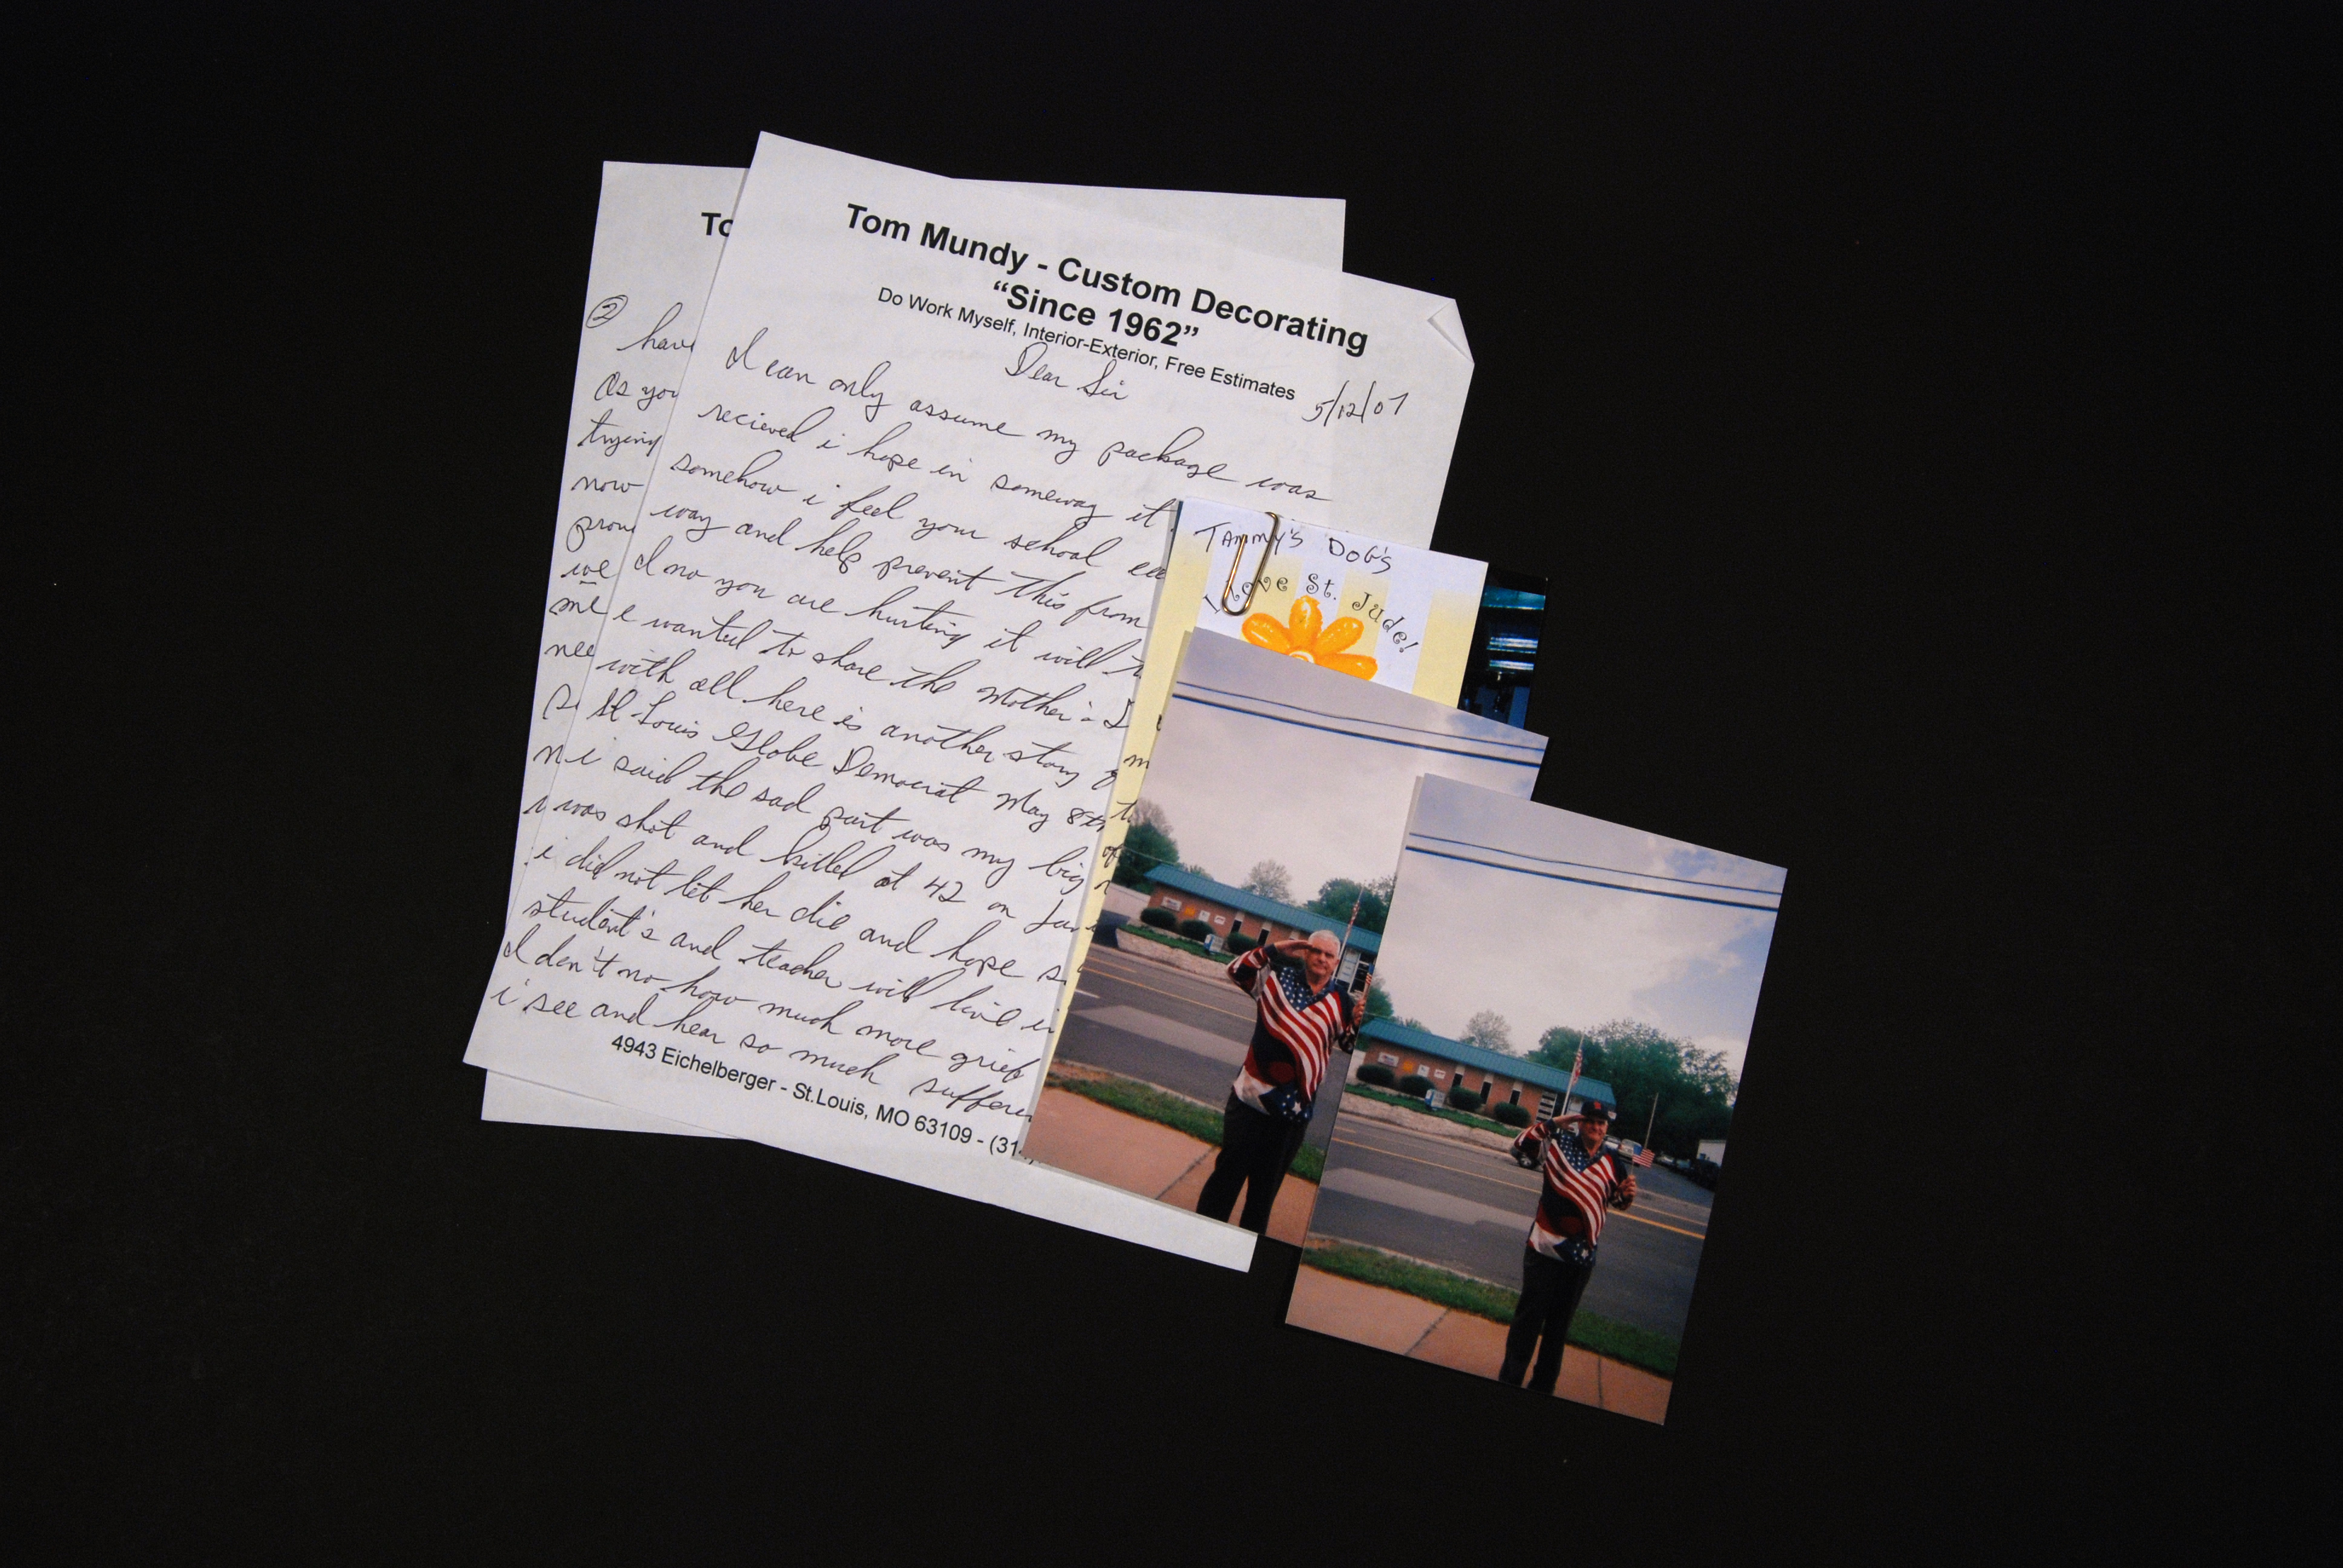 Tom Mundy - Custom Decorating
“Since 1962”
Do Work Myself, Interior-Exterior, Free Estimates
Dear Sir
5/12/07
I can only assume my package was
recieved i hope in someway it
somehow i feel your school
way and help prevent this from
I no you are hurting it will
wanted to share the mother's
with all here is another story
St Louis Globe Democrat May 8th
i said the sad part was my big
was shot and killed at 42 on
i did not let her die and hope
student's and teacher will live
I don't no how much more grief
i see and hear so much
4943 Eichelberger - St.Louis, MO 63109 - (314
2
have
As you
trying
now
we
me
TAMMY'S DOG'S
I Love St. Jude!